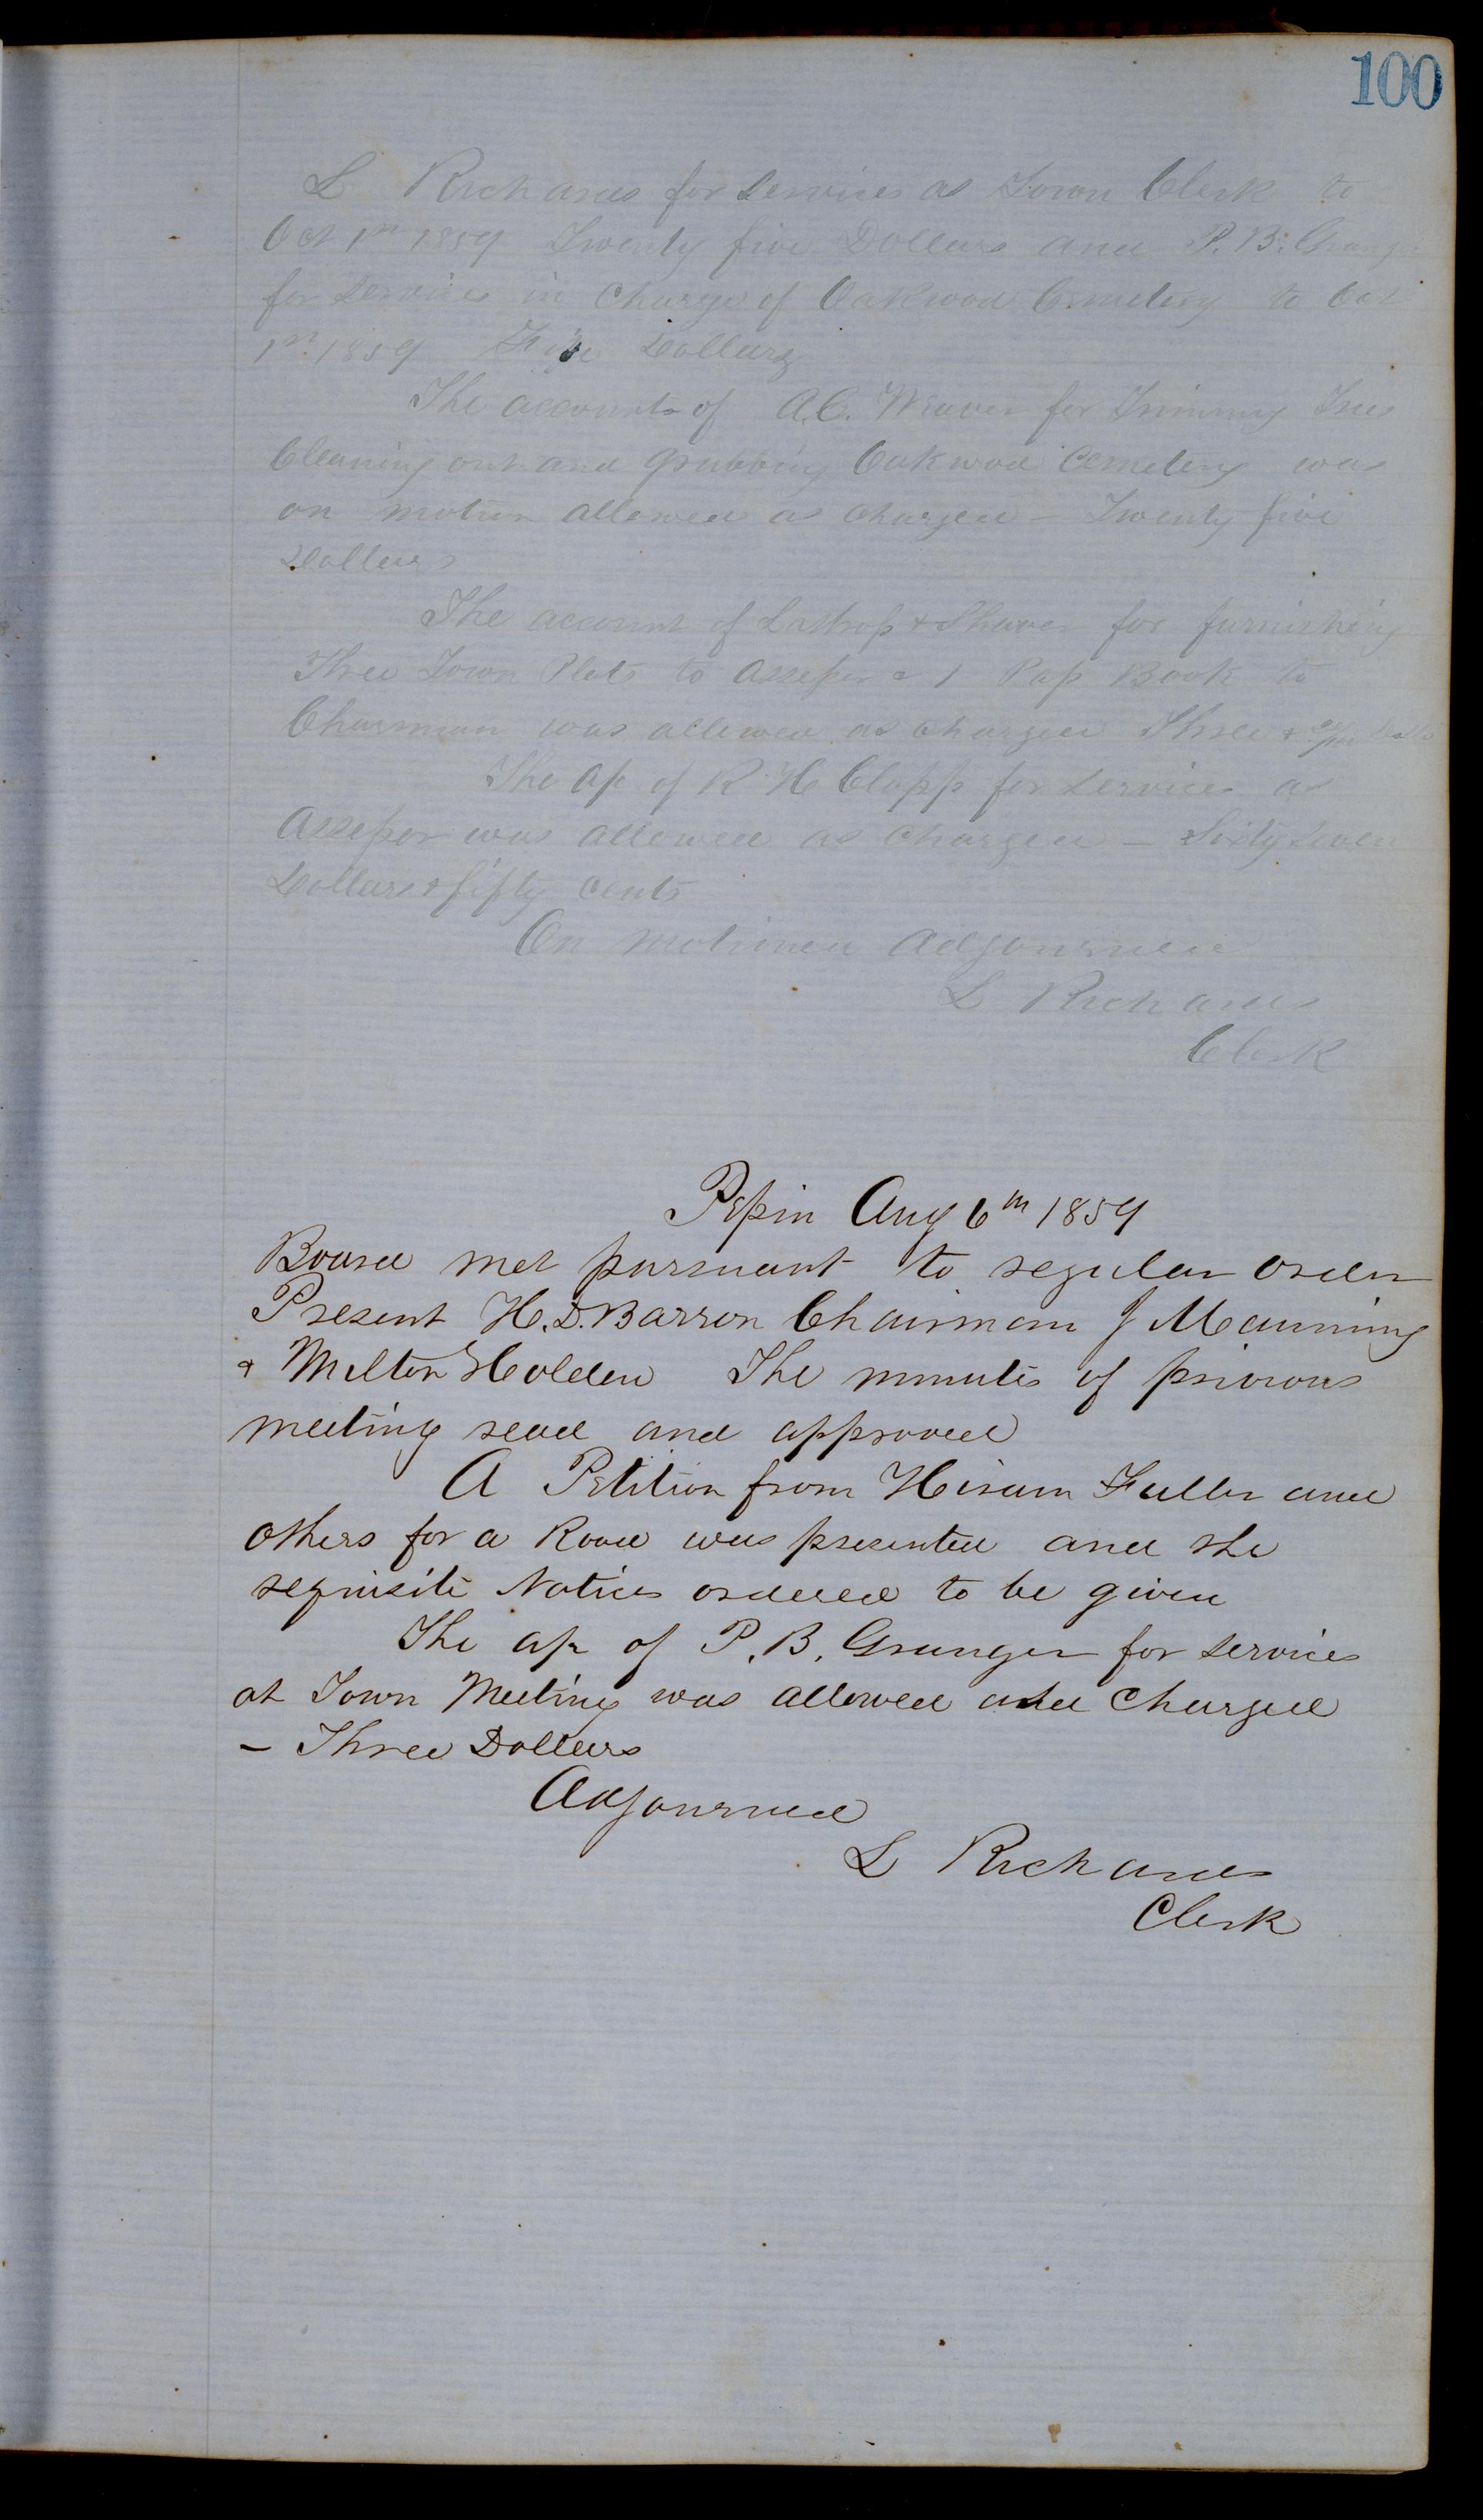 100
L Richards for Services as Town Clerk to
Oct 1st 1859 Twenty five Dollars and P. B. Granger
for services in Charge of Oakwood Cemetery to Oct
1st 1859 Five Dollars
The accounts of A. C. Weaver for Trimming Trees
Cleaning out and Grubbing Oakwood Cemetery was
on motion allowed as charged - Twenty five
Dollars
The account of Lathrop & Shaver for furnishing
Three Town Plats to Assessor & 1 Pass Book to
Chairman was allowed as charged Three
The ac of R H Clapp for Services as
Assessor was allowed as charged - Sixty seven
Dollars & fifty cents
On motioned Adjourned
L Richards
Clerk
Pepin Aug 6th 1859
Board met pursuant to regular order
Present H. D. Barron Chairman J Manning
& Milton Holden The minutes of previous
meeting read and approved
A Petition from Hiram Fuller and
others for a Road was presented and the
requisite Notices ordered to be given
The ac of P. B. Granger for services
at Town Meeting was allowed and Charged
- Three Dollars
Adjourned
L Richards
Clerk